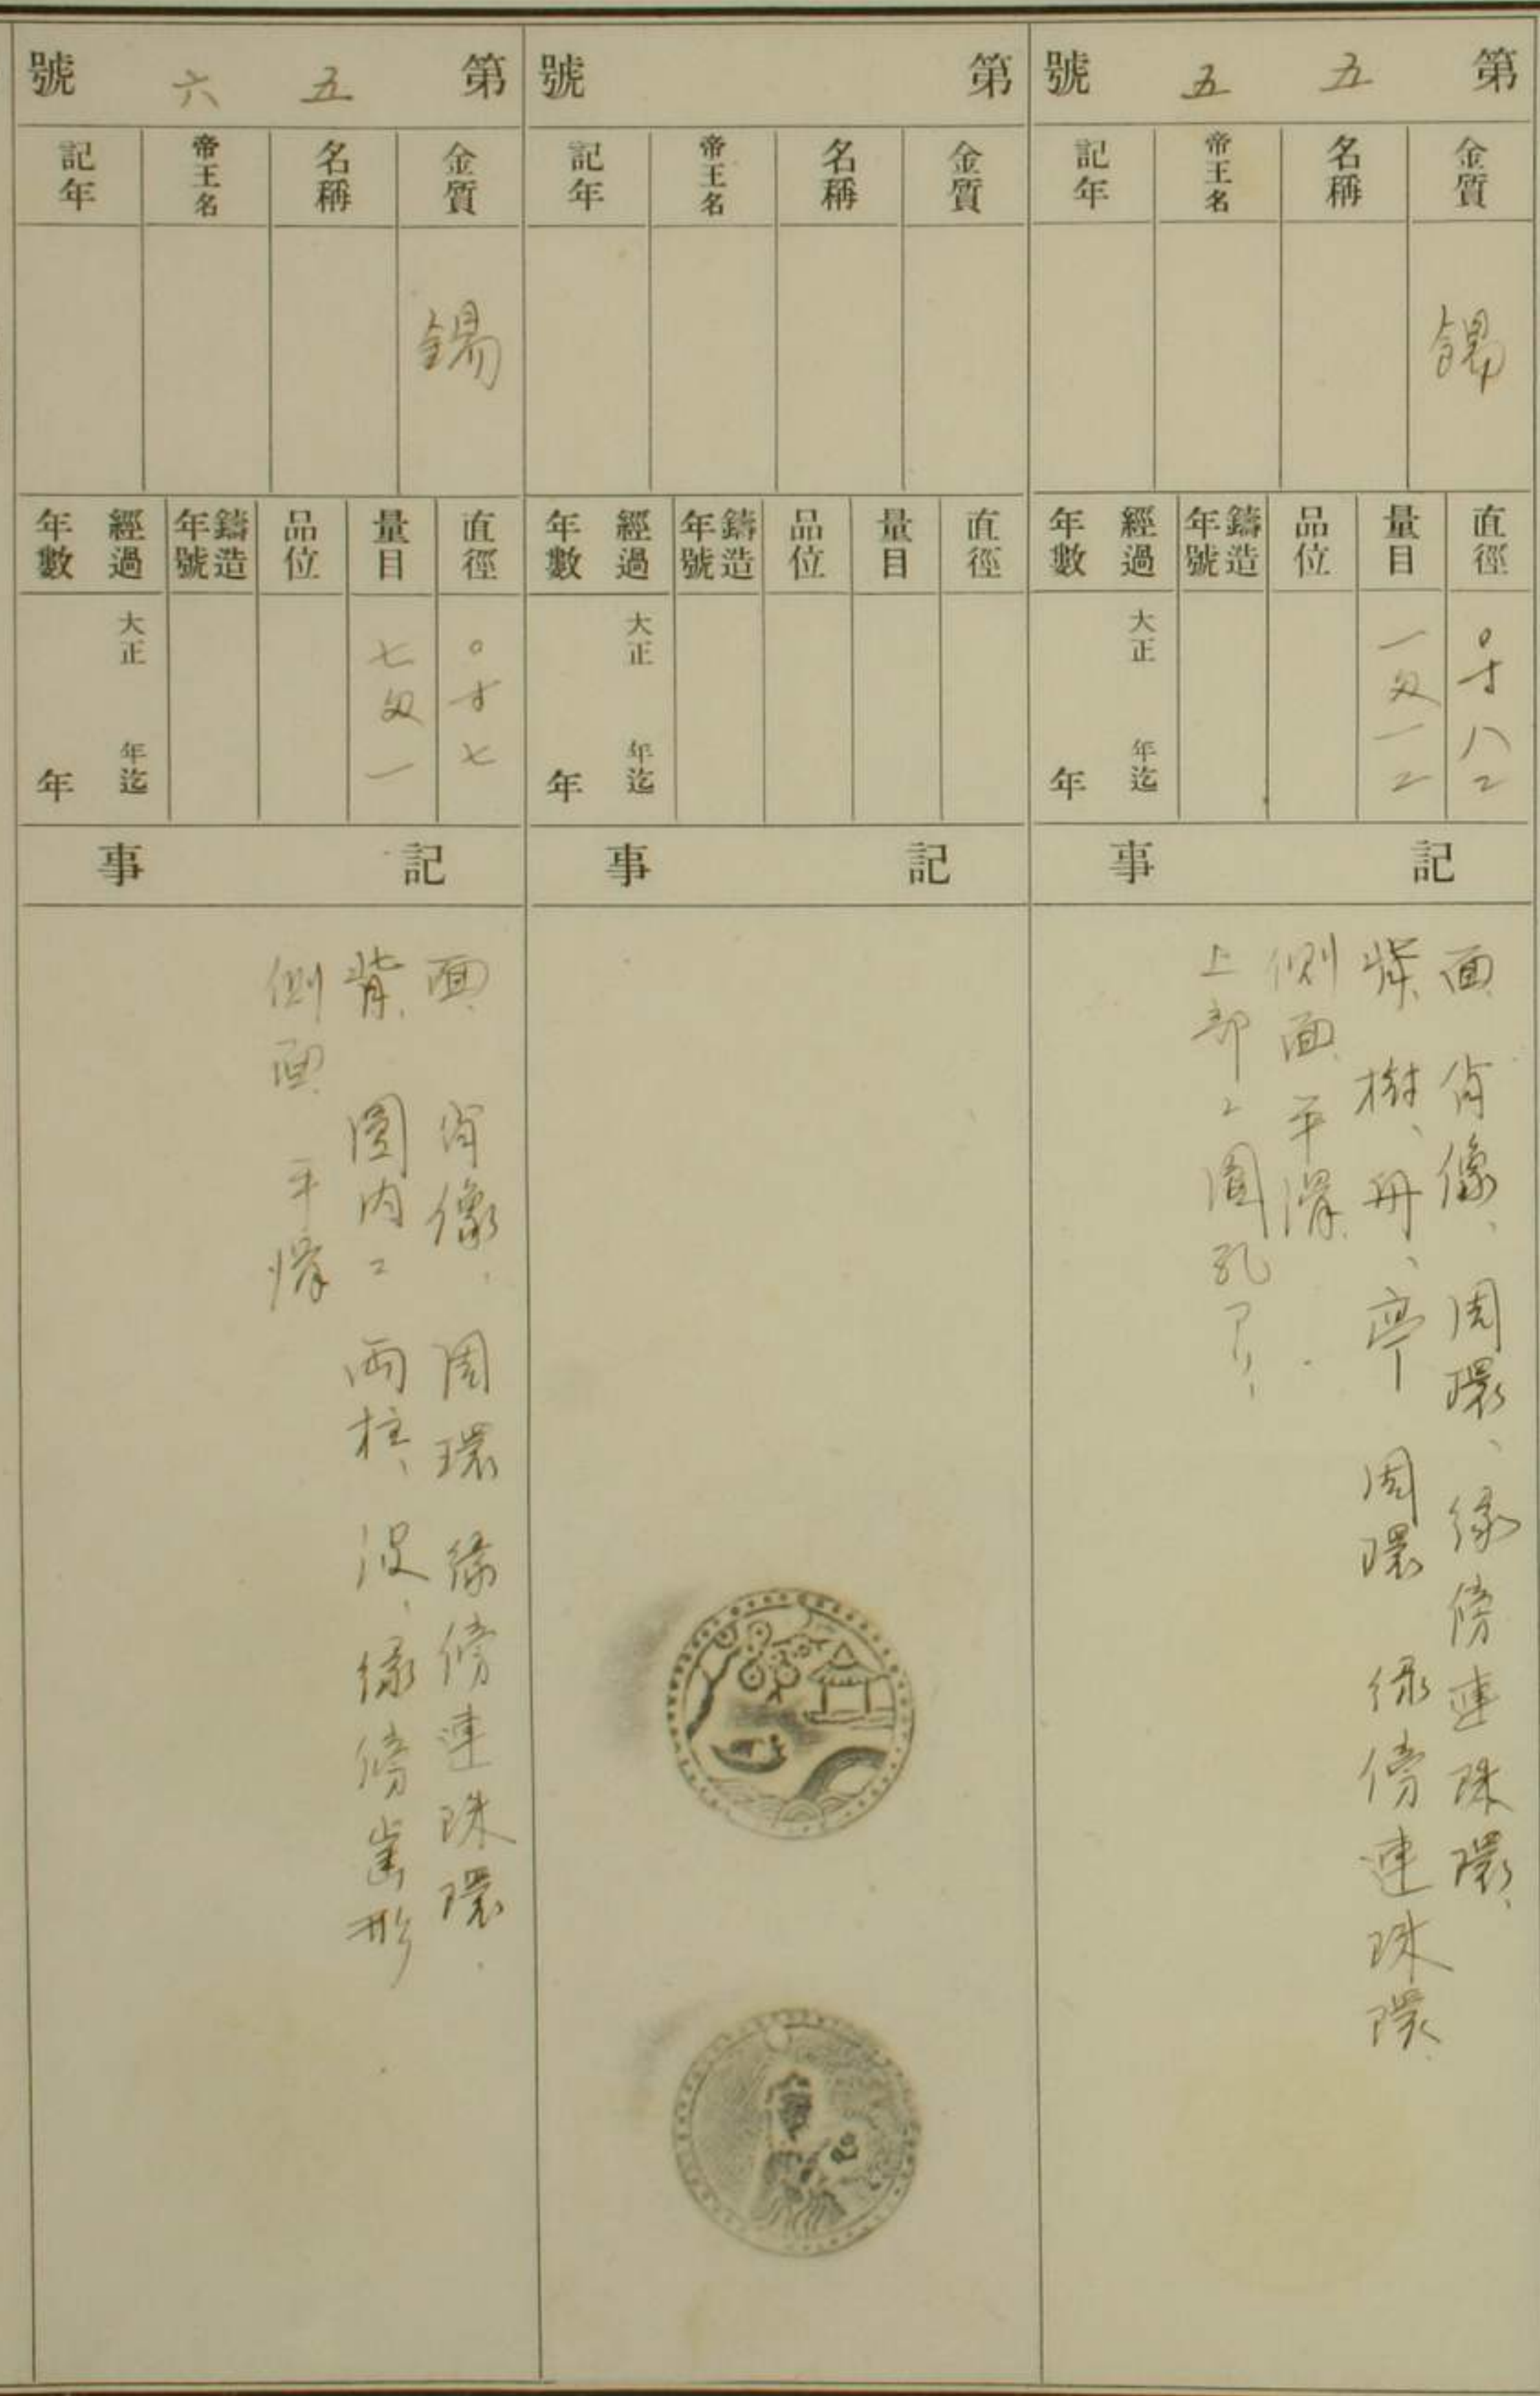 第五五號
金質
名稱
帝王名
記年
錫
直徑
量目
品位
鑄造年號
經過年數
〇寸八二
一匁一二
大正 年迄
年
記事
面 肖像、周環、緣傍連珠環、
背 樹、舟、亭 周環 緣傍連珠環
側面平滑
上部ニ圓孔アリ、
第 號
金質
名稱
帝王名
記年
直徑
量目
品位
鑄造年號
經過年數
大正 年迄
年
記事
第五六號
金質
名稱
帝王名
記年
錫
直徑
量目
品位
鑄造年號
經過年數
〇寸七
七匁一
大正 年迄
年
記事
面 肖像、周環 緣傍連珠環、
背 圓內ニ 兩柱、波、緣傍齒形
側面 平滑